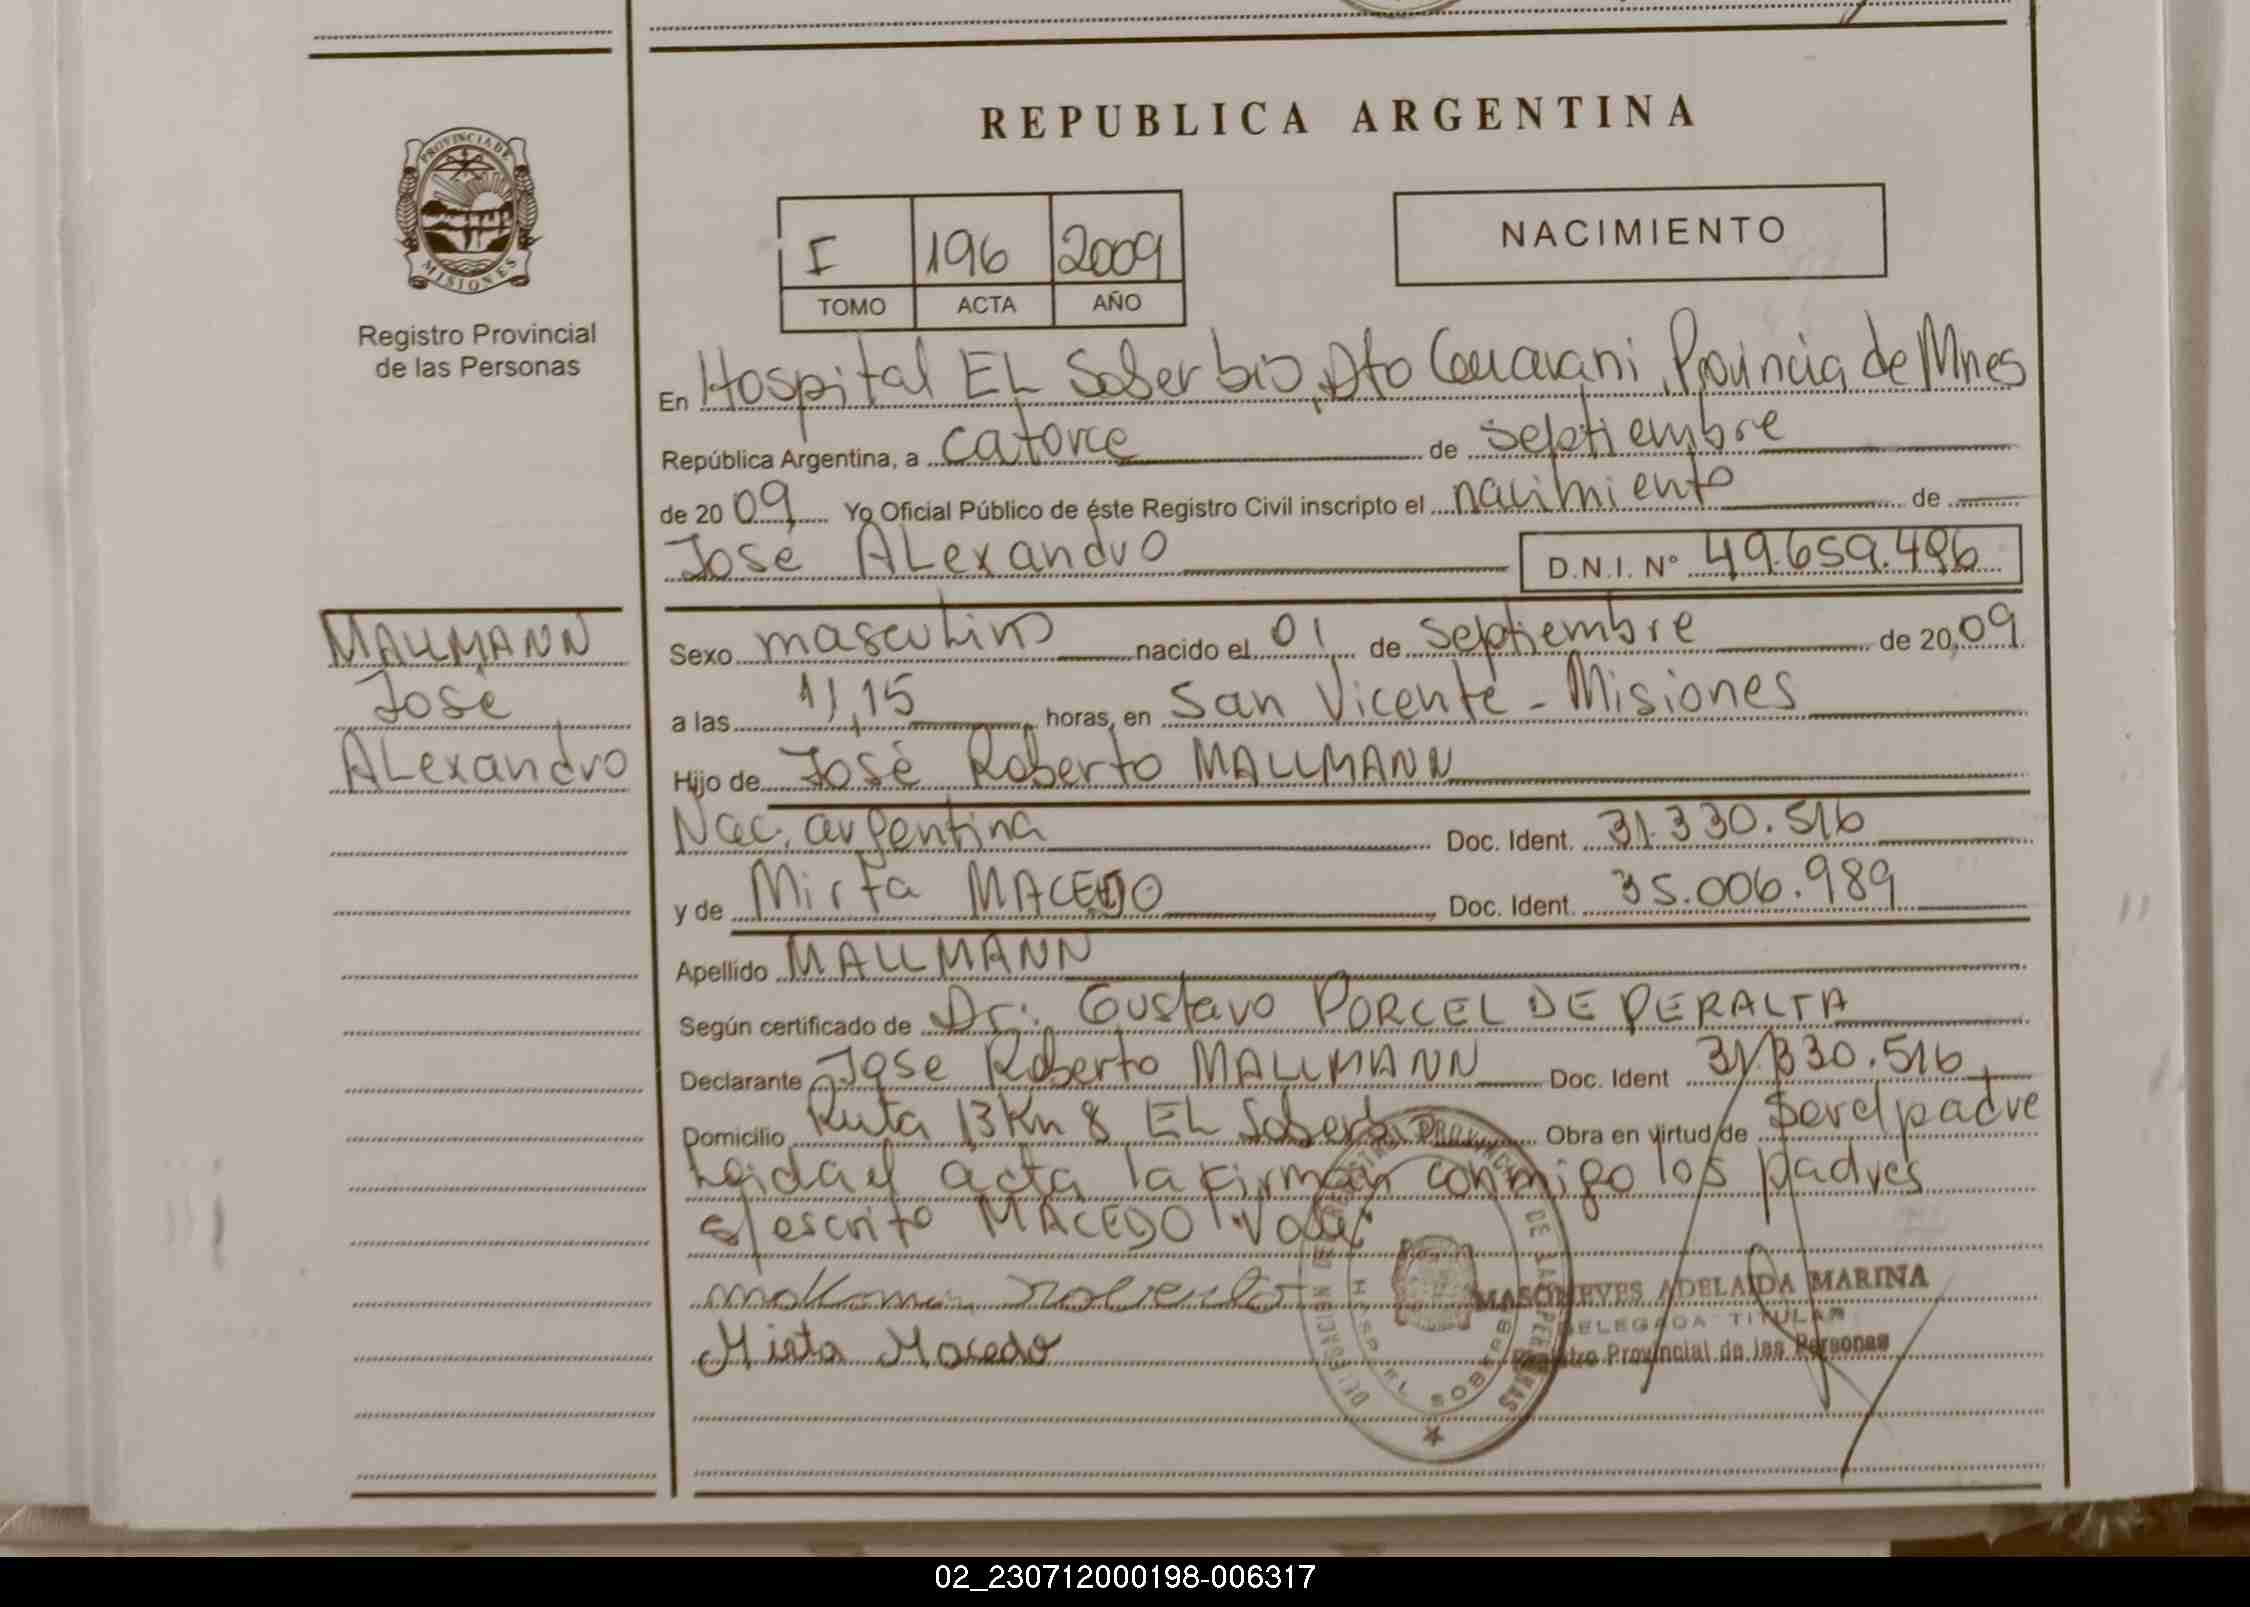 REPUBLICA ARGENTINA
PROVINCIA DE
MISIONES
Registro Provincial
de las Personas
I 196 2009
TOMO ACTA AÑO
NACIMIENTO
En Hospital EL Soberbio, Dto Guarani, Provincia de Mnes
República Argentina, a catorce de septiembre
de 2009 Yo Oficial Público de éste Registro Civil inscripto el nacimiento de
José ALexandro D.N.I. Nº 49.659.496
MALLMANN
José
ALexandro
Sexo masculino nacido el 01 de septiembre de 2009
a las 11,15 horas, en San Vicente - Misiones
Hijo de José Roberto MALLMANN
Nac. argentina Doc. Ident. 31.330.516
y de Mirta MACEDO Doc. Ident. 35.006.989
Apellido MALLMANN
Según certificado de Dr. Gustavo PORCEL DE PERALTA
Declarante José Roberto MALLMANN Doc. Ident 31.330.516
Domicilio Ruta 13 Km 8 EL Soberbio Obra en virtud de ser el padre
Leida el acta la firman conmigo los padres
s/escrito MACEDO Vale
Mirta Macedo
MASONEVES ADELAIDA MARINA
DELEGADA TITULAR
Registro Provincial de las Personas
02_230712000198-006317